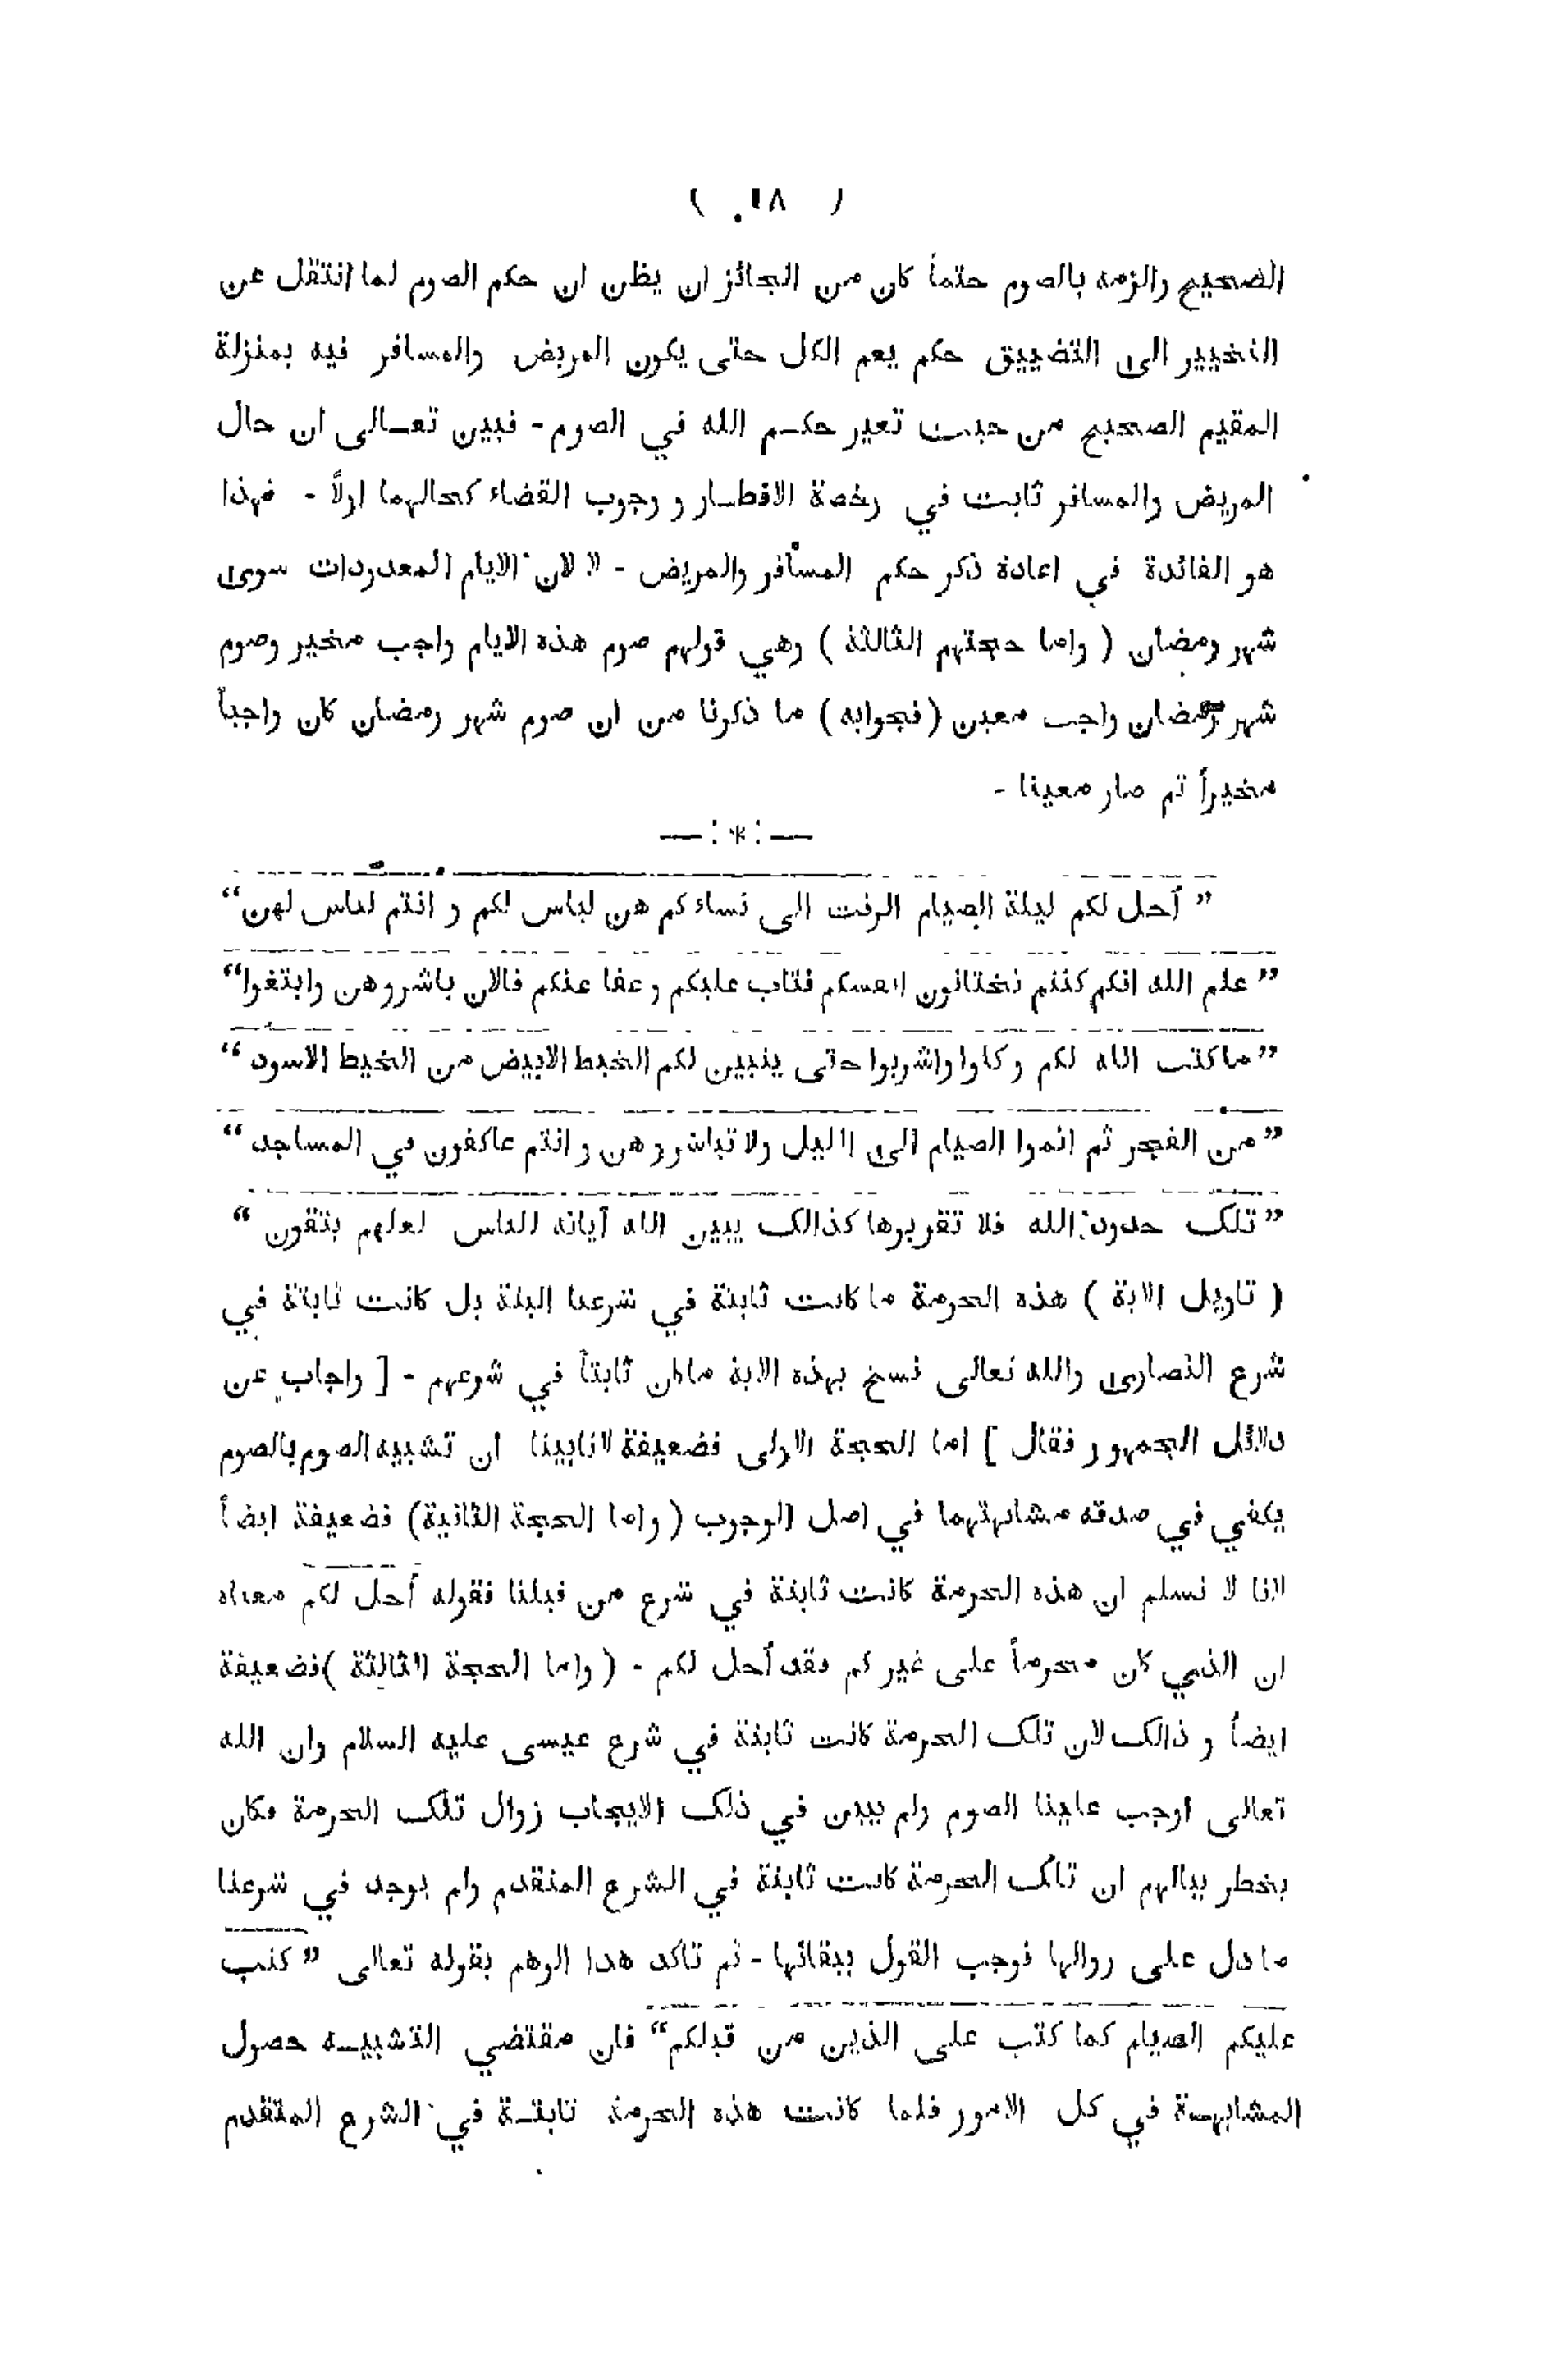 ( ١٨ )
الصحيح والزمه بالصوم حتماً كان من الجائز ان يظن ان حكم الصوم لما انتقل عن
التخيير الى التضييق حكم يعم الكل حتى يكون المريض والمسافر فيه بمنزلة
المقيم الصحيح من حيث تغير حكم الله في الصوم - فبين تعالى ان حال
المريض والمسافر ثابت في رخصة الافطار و وجوب القضاء كحالهما اولاً - فهذا
هو الفائدة في اعادة ذكر حكم المسافر والمريض - لا لان الايام المعدودات سوى
شهر رمضان ( واما حجتهم الثالثة ) وهي قولهم صوم هذه الايام واجب مخير وصوم
شهر رمضان واجب معين ( فجوابه ) ما ذكرنا من ان صوم شهر رمضان كان واجباً
مخيراً ثم صار معينا -
— : * : —
” أحل لكم ليلة الصيام الرفث الى نساءكم هن لباس لكم و انتم لباس لهن “
” علم الله انكم كنتم تختانون انفسكم فتاب عليكم و عفا عنكم فالان باشروهن وابتغوا “
” ما كتب الله لكم و كلوا واشربوا حتى يتبين لكم الخيط الابيض من الخيط الاسود “
” من الفجر ثم اتموا الصيام الى اليل ولا تباشروهن و انتم عاكفون في المساجد “
” تلك حدود الله فلا تقربوها كذالك يبين الله آياته للناس لعلهم يتقون “
( تاويل الاية ) هذه الحرمة ما كانت ثابتة في شرعنا البتة بل كانت ثابتة في
شرع النصارى والله تعالى نسخ بهذه الاية ما كان ثابتاً في شرعهم - [ واجاب عن
دلائل الجمهور فقال ] اما الحجة الاولى فضعيفة لانا بينا ان تشبيه الصوم بالصوم
يكفي في صدقه مشابهتهما في اصل الوجوب ( واما الحجة الثانية ) فضعيفة ايضاً
لانا لا نسلم ان هذه الحرمة كانت ثابتة في شرع من قبلنا فقوله أحل لكم معناه
ان الذي كان محرماً على غيركم فقد أحل لكم - ( واما الحجة الثالثة ) فضعيفة
ايضاً و ذالك لان تلك الحرمة كانت ثابتة في شرع عيسى عليه السلام وان الله
تعالى اوجب علينا الصوم ولم يبين في ذلك الايجاب زوال تلك الحرمة فكان
يخطر ببالهم ان تلك الحرمة كانت ثابتة في الشرع المتقدم ولم يوجد في شرعنا
ما دل على زوالها فوجب القول ببقائها - ثم تاكد هذا الوهم بقوله تعالى ” كتب
عليكم الصيام كما كتب على الذين من قبلكم “ فان مقتضي التشبيه حصول
المشابهة في كل الامور فلما كانت هذه الحرمة ثابتة في الشرع المتقدم